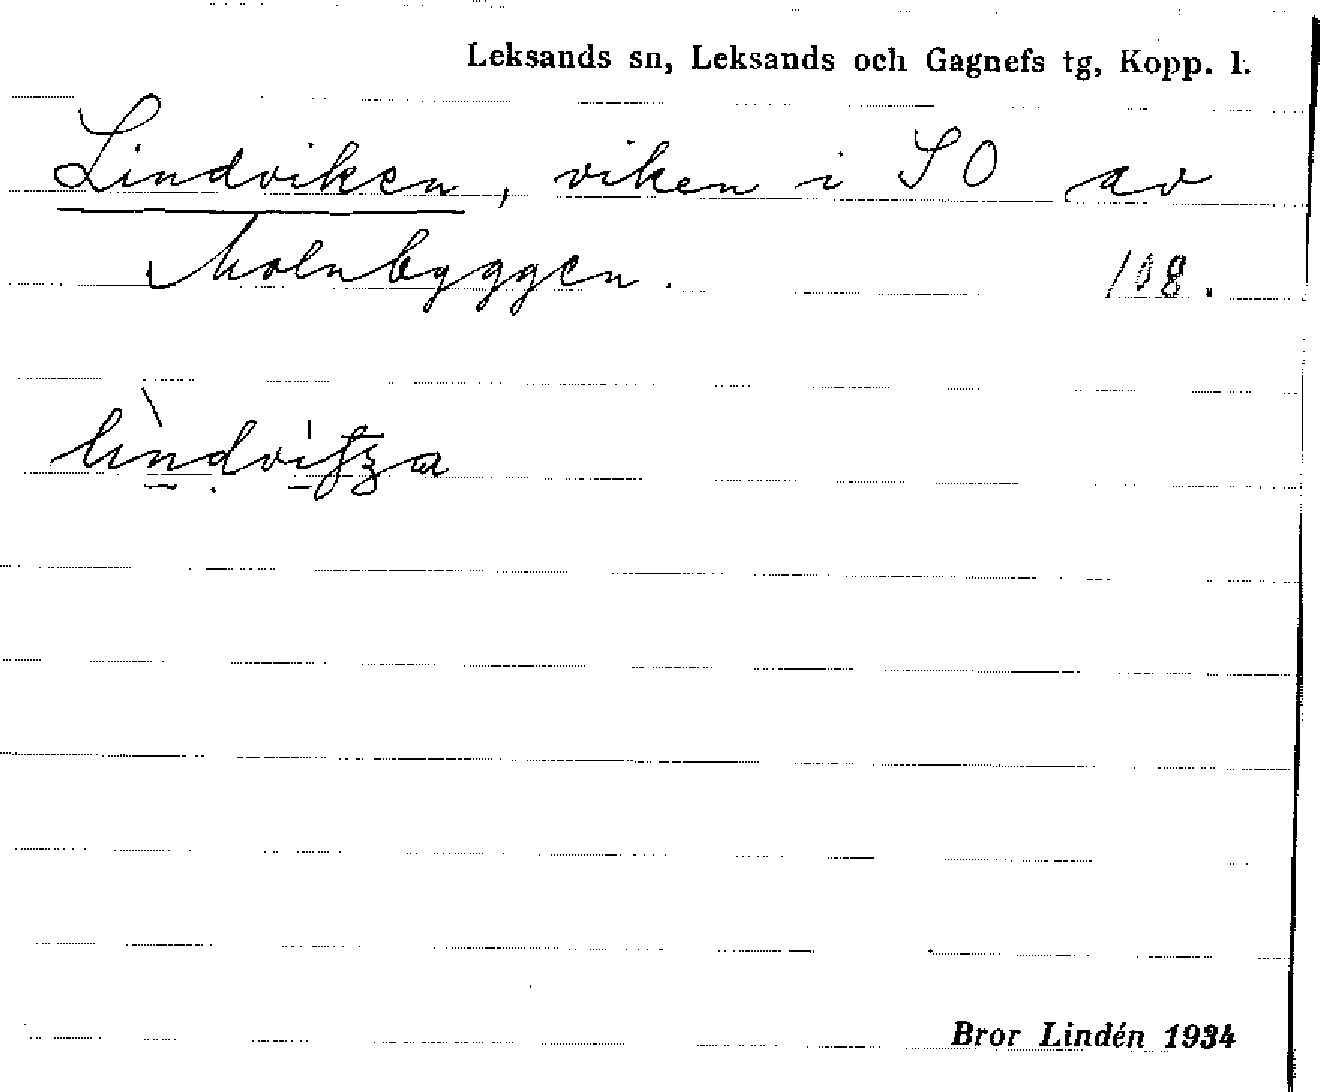 Leksands sn, Leksands och Gagnefs tg, Kopp. l.
Lindviken, viken i SO av
Molnbyggen. 108.
Bror Lindén 1934